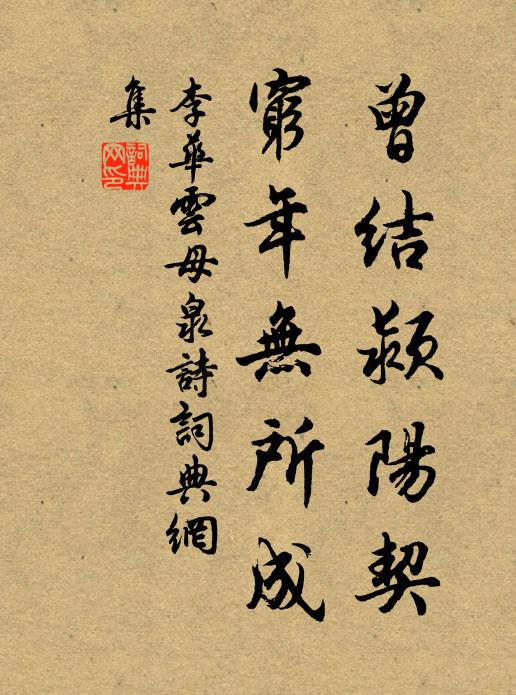 曾结颍陽契
窮年無所成
李華雲母泉詩詞典網
集
詞典
网印